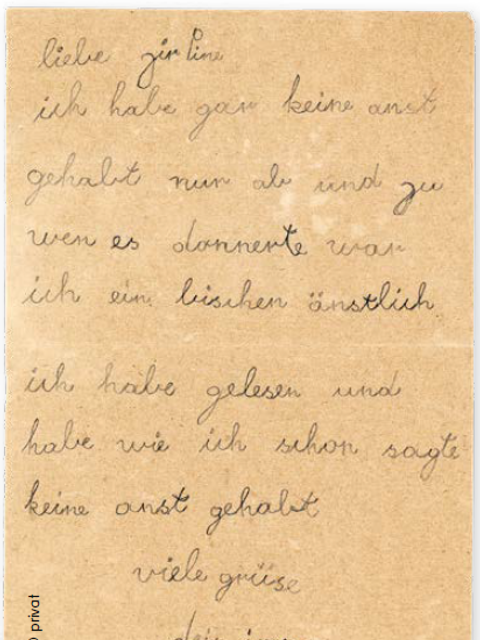 liebe
ich habe gar keine anst
gehabt nur ab und zu
wen es donnerte war
ich ein bischen änstlich
ich habe gelesen und
habe wie ich schon sagte
keine anst gehabt
viele grüse
dein
© privat